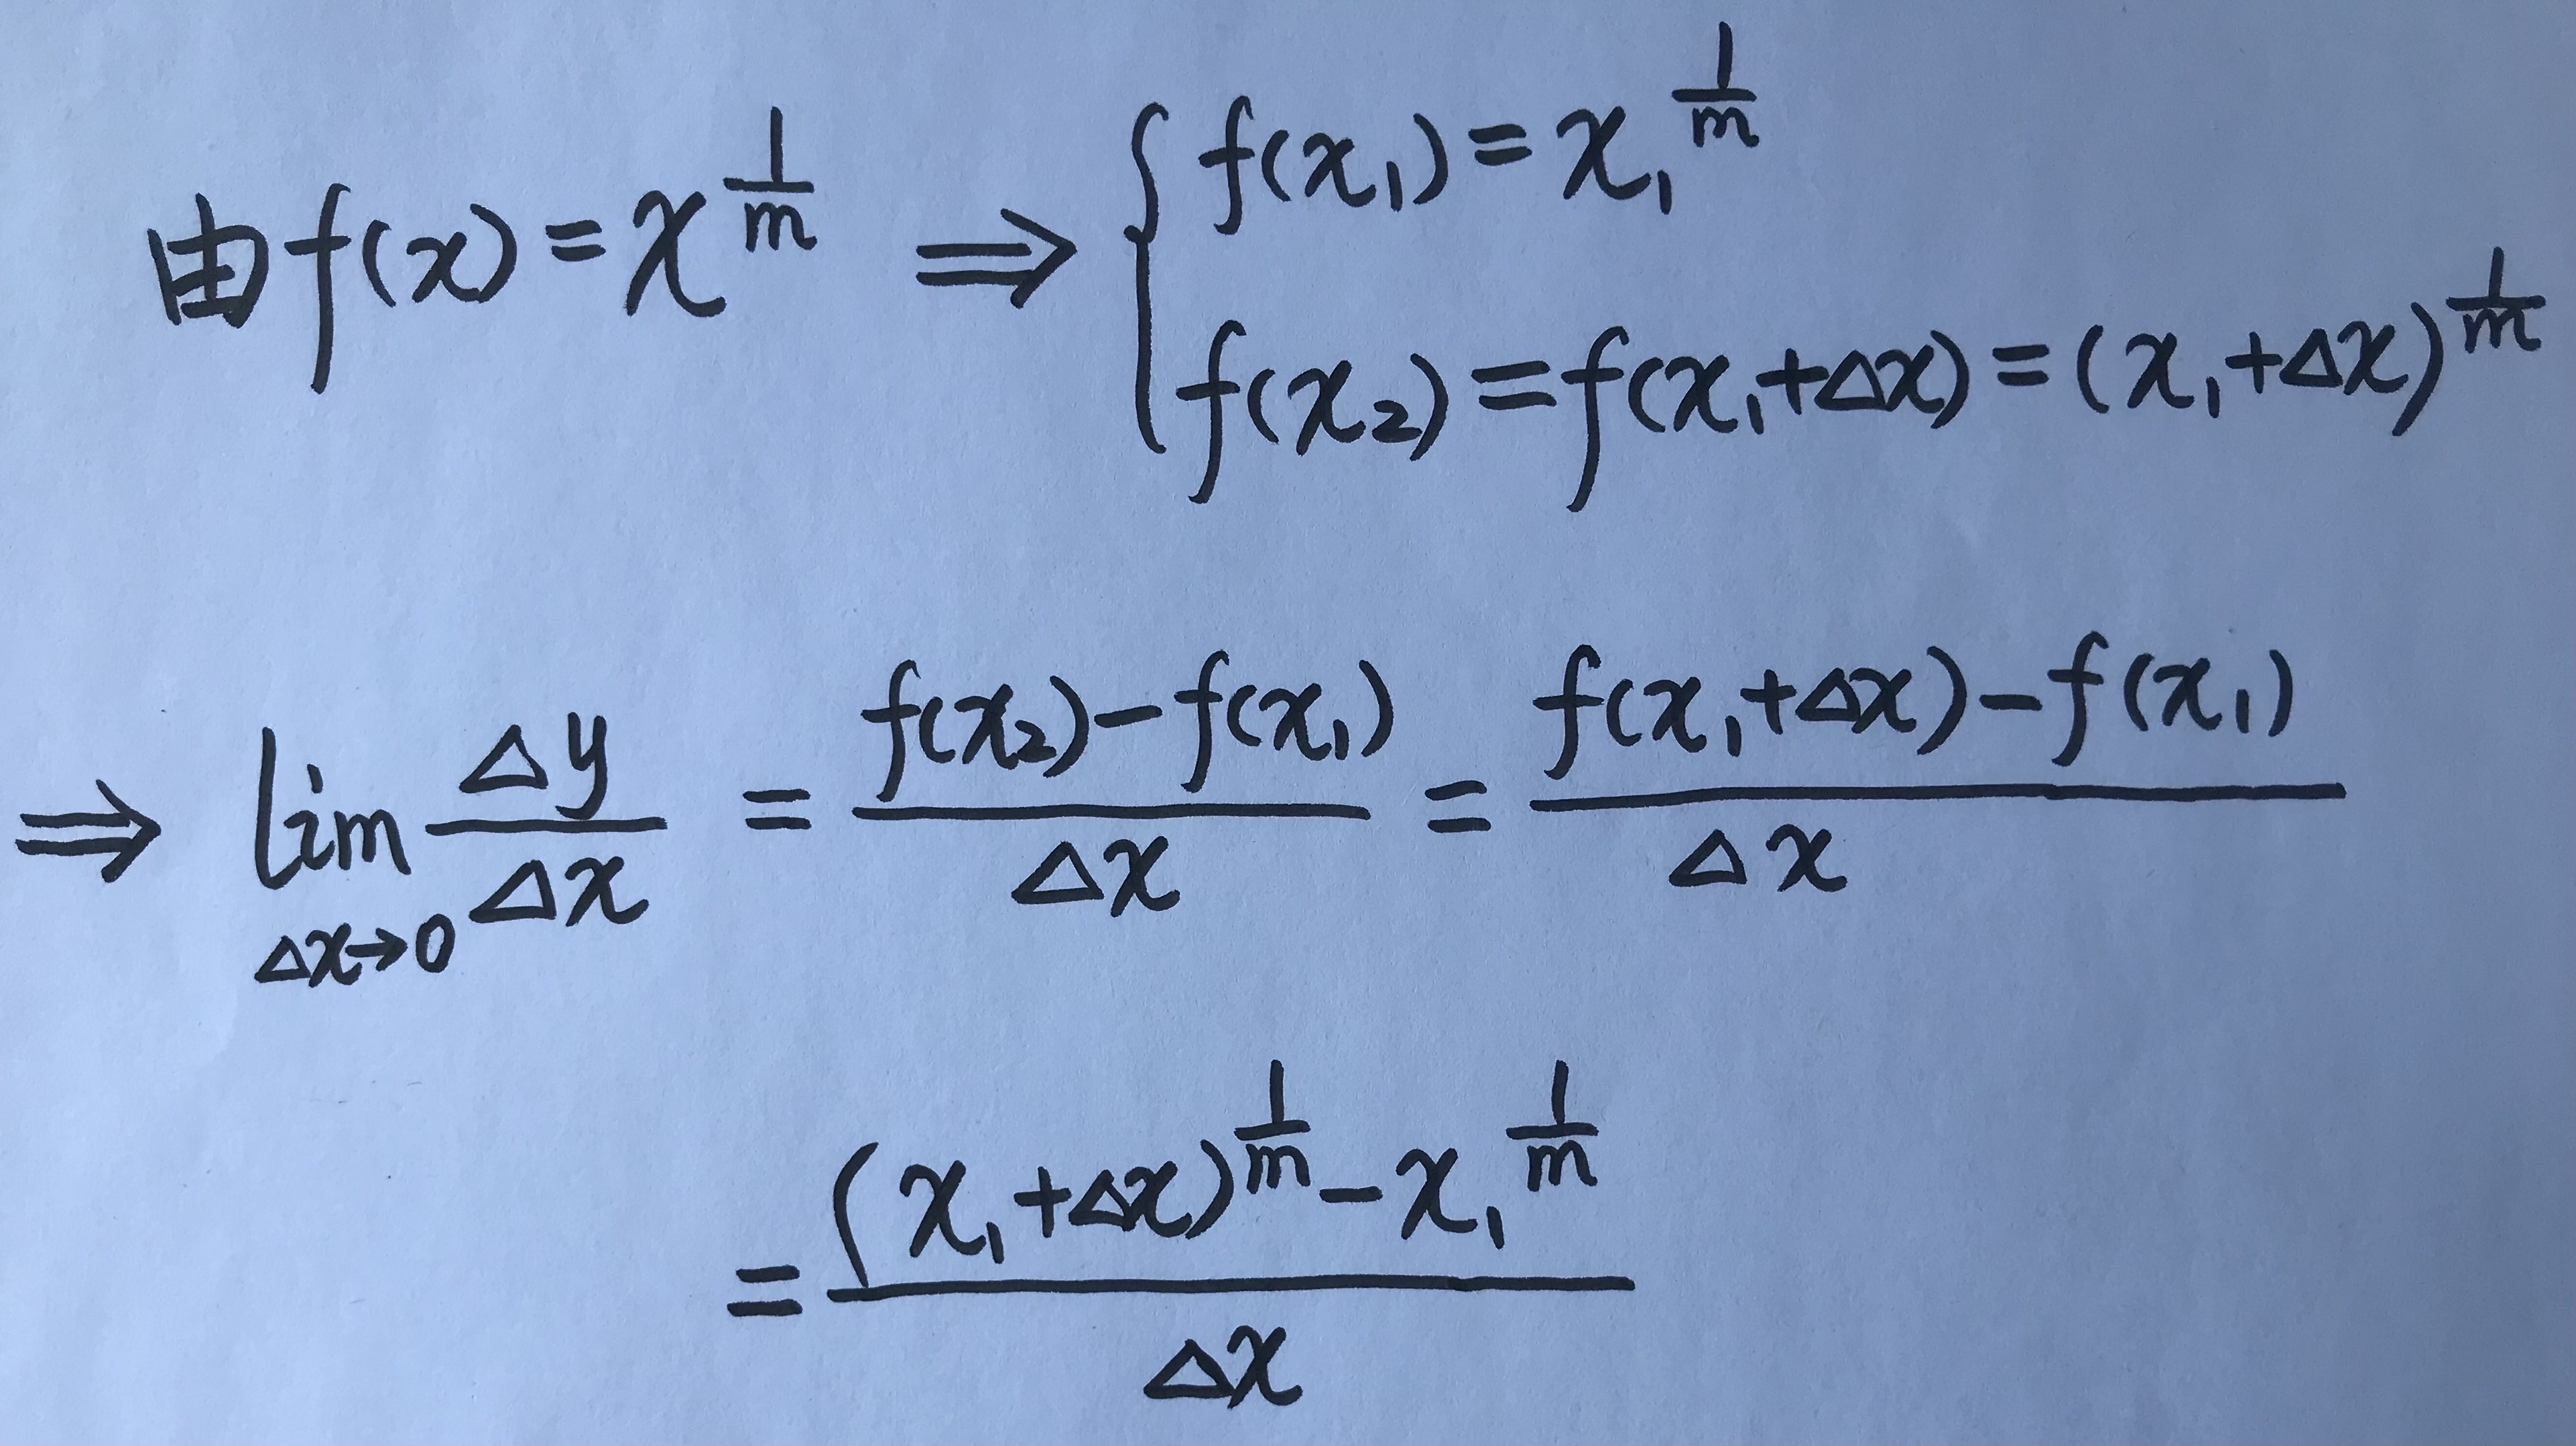 由f(x)=x^{\frac{1}{m}} ⟹ \begin{cases} f(x_1)=x_1^{\frac{1}{m}} \\ f(x_2)=f(x_1+Δx)=(x_1+Δx)^{\frac{1}{m}} \end{cases}
⟹ \lim_{Δx→0} \frac{Δy}{Δx} = \frac{f(x_2)-f(x_1)}{Δx} = \frac{f(x_1+Δx)-f(x_1)}{Δx}
= \frac{(x_1+Δx)^{\frac{1}{m}}-x_1^{\frac{1}{m}}}{Δx}